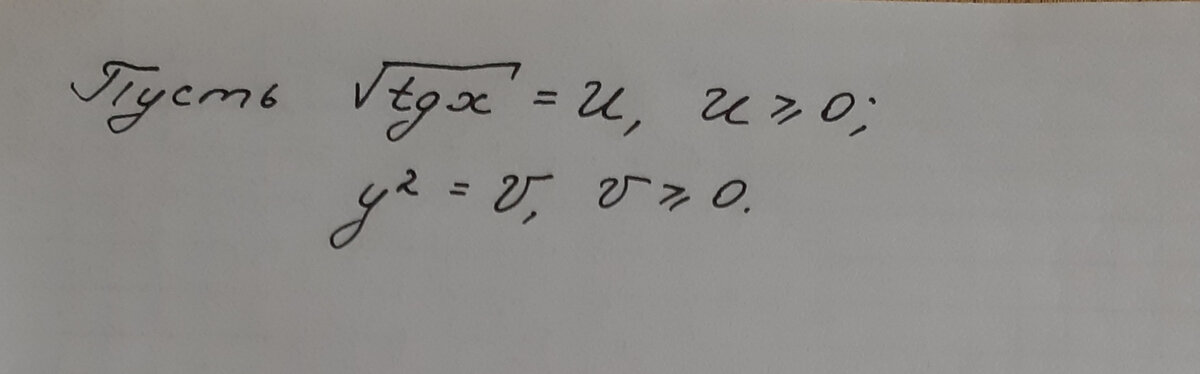 Пусть √tgx = u, u ⩾ 0;
y² = v, v ⩾ 0.